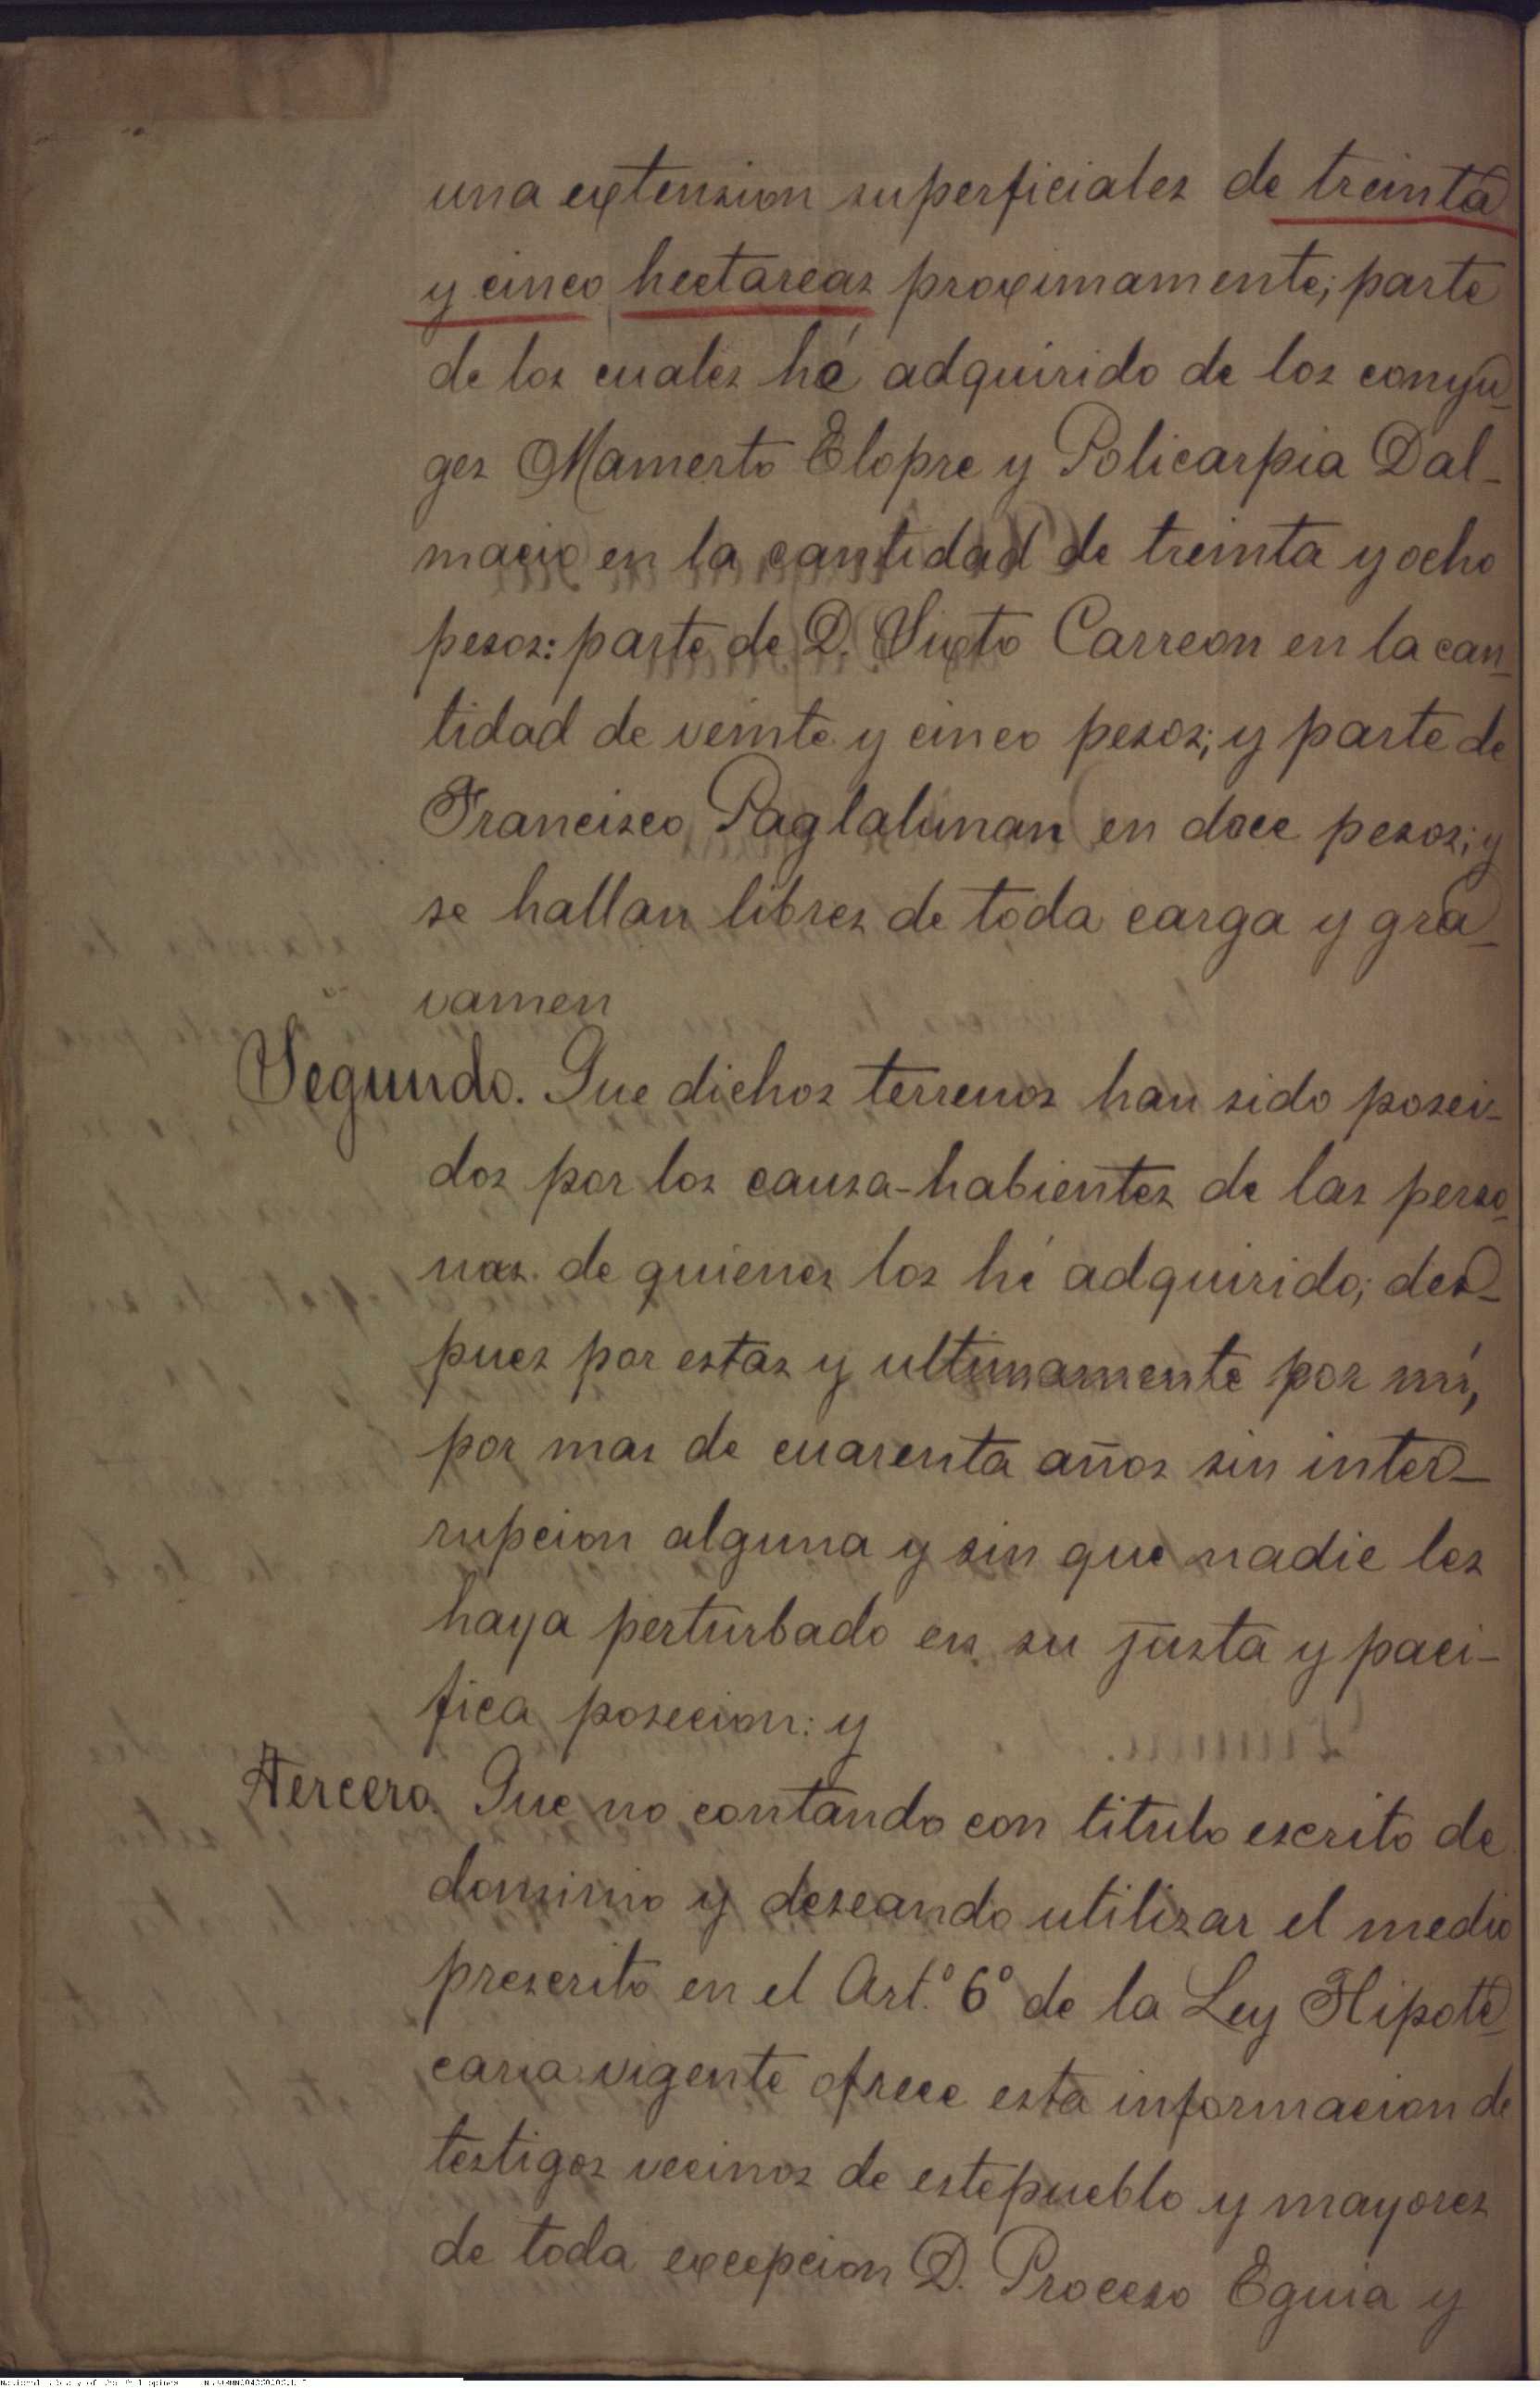 una extension superficiales de treinta
y cinco hectareas proximamente; parte
de los cuales hé adquirido de los conyu-
ges Mamerto Elopre y Policarpia Dal-
macio en la cantidad de treinta y ocho
pesos: parte de D. Sixto Carreon en la can-
tidad de veinte y cinco pesos; y parte de
Francisco Paglalunan en doce pesos; y
se hallan libres de toda carga y gra-
vamen
Segundo. Que dichos terrenos han sido posei-
dos por los causa-habientes de las perso-
nas de quienes los hé adquirido; des-
pues por estas y ultimamente por mí,
por mas de cuarenta años sin inter-
rupcion alguna y sin que nadie les
haya perturbado en su justa y paci-
fica posecion: y
Tercero. Que no contando con titulo escrito de
dominio y deseando utilizar el medio
prescrito en el Art.º 6º de la Ley Hipote-
caria vigente ofrece esta informacion de
testigos vecinos de este pueblo y mayores
de toda excepcion D. Proceso Eguia y
National Library of the Philippines